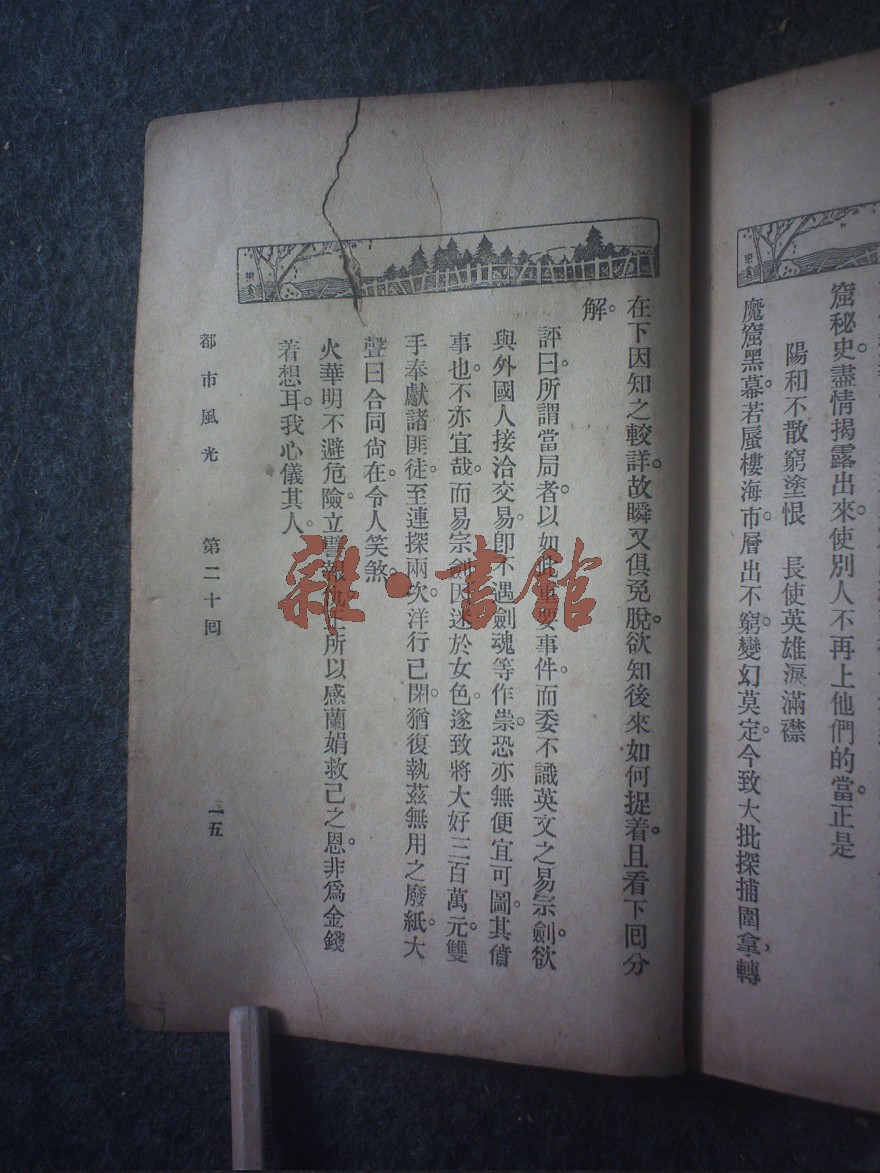 窟秘史。盡情揭露出來。使別人不再上他們的當。正是
陽和不散窮塗恨　長使英雄淚滿襟
魔窟黑幕。若蜃樓海市。層出不窮。變幻莫定。今致大批探捕圍拿。轉
在下因知之較詳。故瞬又俱冤脫。欲知後來如何捉着。且看下回分
解。
評曰。所謂當局者。以如此重要事件。而委不識英文之易宗劍。欲
與外國人接洽交易。卽不遇劍魂等作祟。恐亦無便宜可圖。其僨
事也。不亦宜哉。而易宗劍因迷於女色。遂致將大好三百萬元。雙
手奉獻諸匪徒。至連探兩次。洋行已閉。猶復執茲無用之廢紙。大
聲曰合同尙在。令人笑煞。
火華明不避危險。立誓報仇。正所以感蘭娟救已之恩。非爲金錢
着想耳。我心儀其人。
都市風光　第二十回　一五
雜·書館